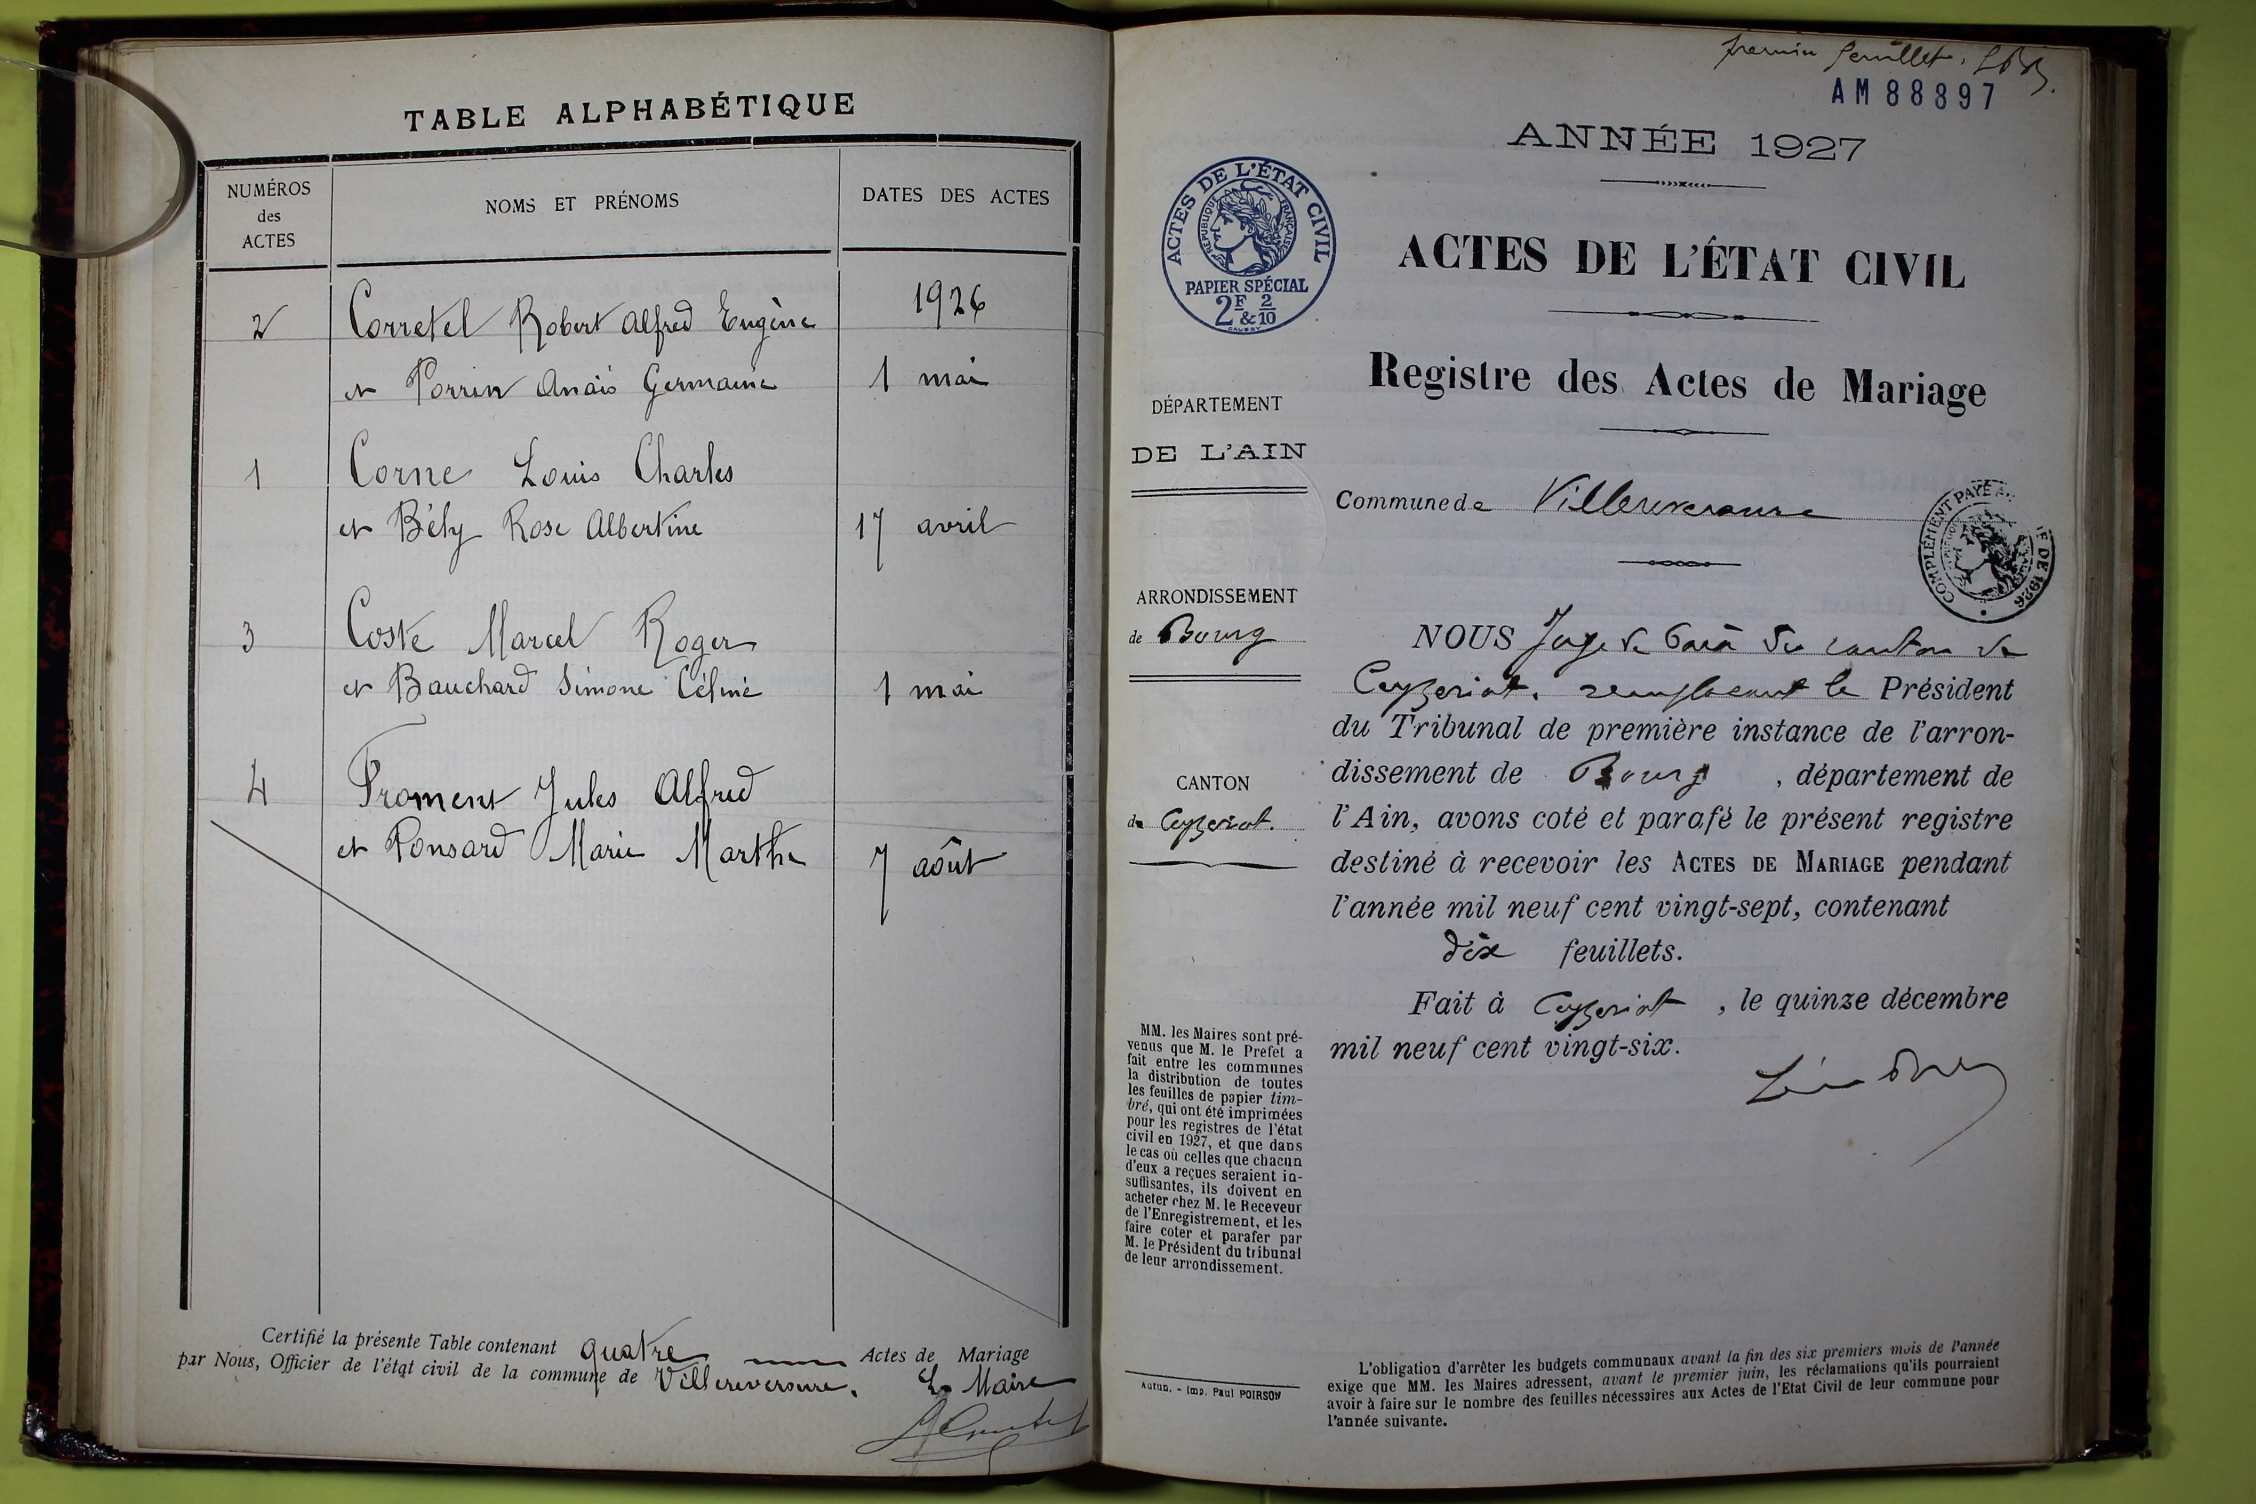 TABLE ALPHABÉTIQUE
NUMÉROS
des
ACTES
NOMS ET PRÉNOMS
DATES DES ACTES
2 Corretel Robert Alfred Eugène 1926
et Perrin Anaïs Germaine 1 mai
1 Corne Louis Charles
et Bély Rose Albertine 17 avril
3 Coste Marcel Roger
et Bauchard Simone Céline 1 mai
4 Froment Jules Alfred
et Ponsard Marie Marthe 7 août
Certifié la présente Table contenant quatre Actes de Mariage
par Nous, Officier de l'état civil de la commune de Villereversure. Le Maire
premier feuillet.
AM 88897
ANNÉE 1927
ACTES DE L'ÉTAT CIVIL
RÉPUBLIQUE FRANÇAISE
PAPIER SPÉCIAL
2F & 2/10
ACTES DE L'ÉTAT CIVIL
Registre des Actes de Mariage
DÉPARTEMENT
DE L'AIN
Commune de Villereversure
COMPLÉMENT PAYÉ
DE 1926
ARRONDISSEMENT
de Bourg
CANTON
de Ceyzeriat.
NOUS Juge de Paix du canton de
Ceyzeriat, remplaçant le Président
du Tribunal de première instance de l'arron-
dissement de Bourg, département de
l'Ain, avons coté et parafé le présent registre
destiné à recevoir les ACTES DE MARIAGE pendant
l'année mil neuf cent vingt-sept, contenant
dix feuillets.
Fait à Ceyzeriat, le quinze décembre
mil neuf cent vingt-six.
MM. les Maires sont pré-
venus que M. le Prefet a
fait entre les communes
la distribution de toutes
les feuilles de papier tim-
bré, qui ont été imprimées
pour les registres de l'état
civil en 1927, et que dans
le cas où celles que chacun
d'eux a reçues seraient in-
suffisantes, ils doivent en
acheter chez M. le Receveur
de l'Enregistrement, et les
faire coter et parafer par
M. le Président du tribunal
de leur arrondissement.
Autun. - Imp. Paul POIRSON
L'obligation d'arrêter les budgets communaux avant la fin des six premiers mois de l'année
exige que MM. les Maires adressent, avant le premier juin, les réclamations qu'ils pourraient
avoir à faire sur le nombre des feuilles nécessaires aux Actes de l'Etat Civil de leur commune pour
l'année suivante.